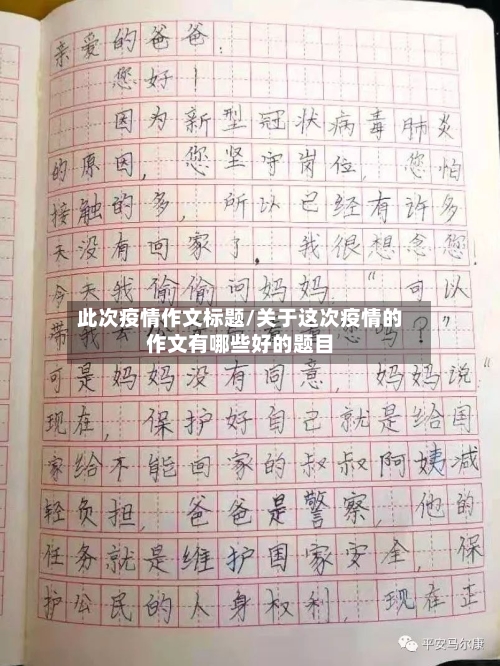 亲爱的爸爸:
您好!
因为新型冠状病毒肺炎
的原因,您坚守岗位,您怕
接触的多,所以已经有许多
天没有回家了,我很想念您!
今天我偷偷问妈妈:"可以
此次疫情作文标题/关于这次疫情的
作文有哪些好的题目
带我去
您吗?"
可是妈妈没有同意,妈妈说:
现在,保护好自己就是给国
家给不能回家的叔叔阿姨减
轻负担,爸爸是警察,他的
任务就是维护国家安全,保
护公民的人身权利,现在正
平安马尔康